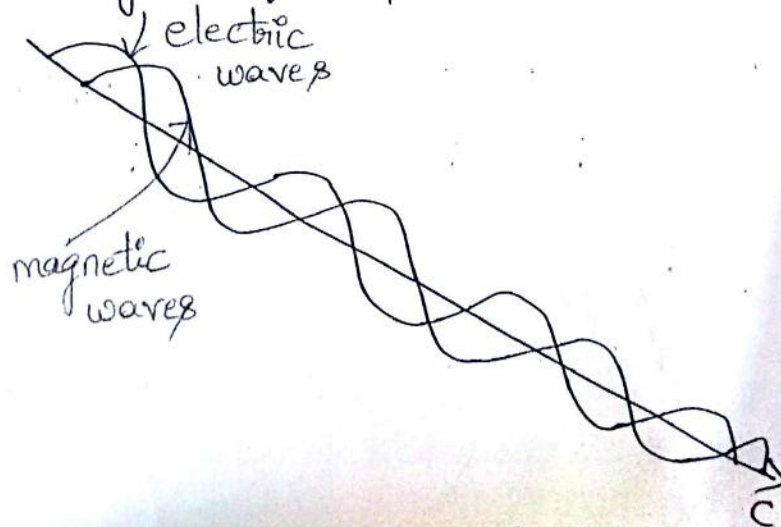 electric
waves
magnetic
waves
C